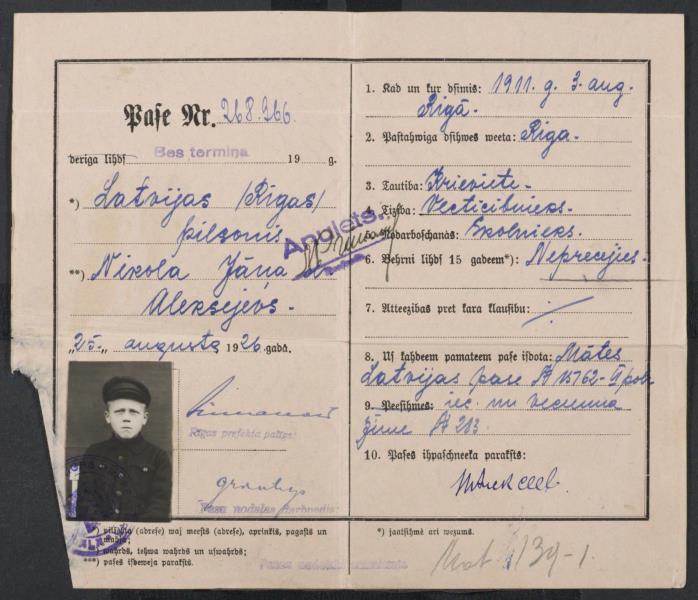 Pase Nr. 268.966.
deriga lihds Bes termiņa 19 g.
*) Latvijas /Rigas/
pilsonis
**) Nikola Jāņa d.
Aleksejevs.
"25." augustā 1926. gadā.
Rīgas prefekta palīgs:
Pasu nodaļas
*) pilsehta (adrese) waj meests (adrese), aprinkis, pagasts un
mahja;
**) wahrds, tehwa wahrds un uswahrds;
***) pases isdeweja paraksts.
1. Kad un kur dsimis: 1911. g. 3. aug.
Rīgā.
2. Pastahwiga dsihwes weeta: Riga.
3. Tautiba: Krieviete.
4. Tiziba: Vecticibnieks.
5. Nodarboschanās: Skolnieks.
6. Behrni lihds 15 gadeem*): Neprecejies.
Applets.
7. Atteezibas pret kara klausibu: /
8. Us kahdeem pamateem pase isdota: Mātes
Latvijas pase № 15762-II/pol
9. Peesihmes: iec. un vecuma
zime № 213.
10. Pases ihpaschneeka paraksts:
*) jaatsihmē ari wezums.
139-1.